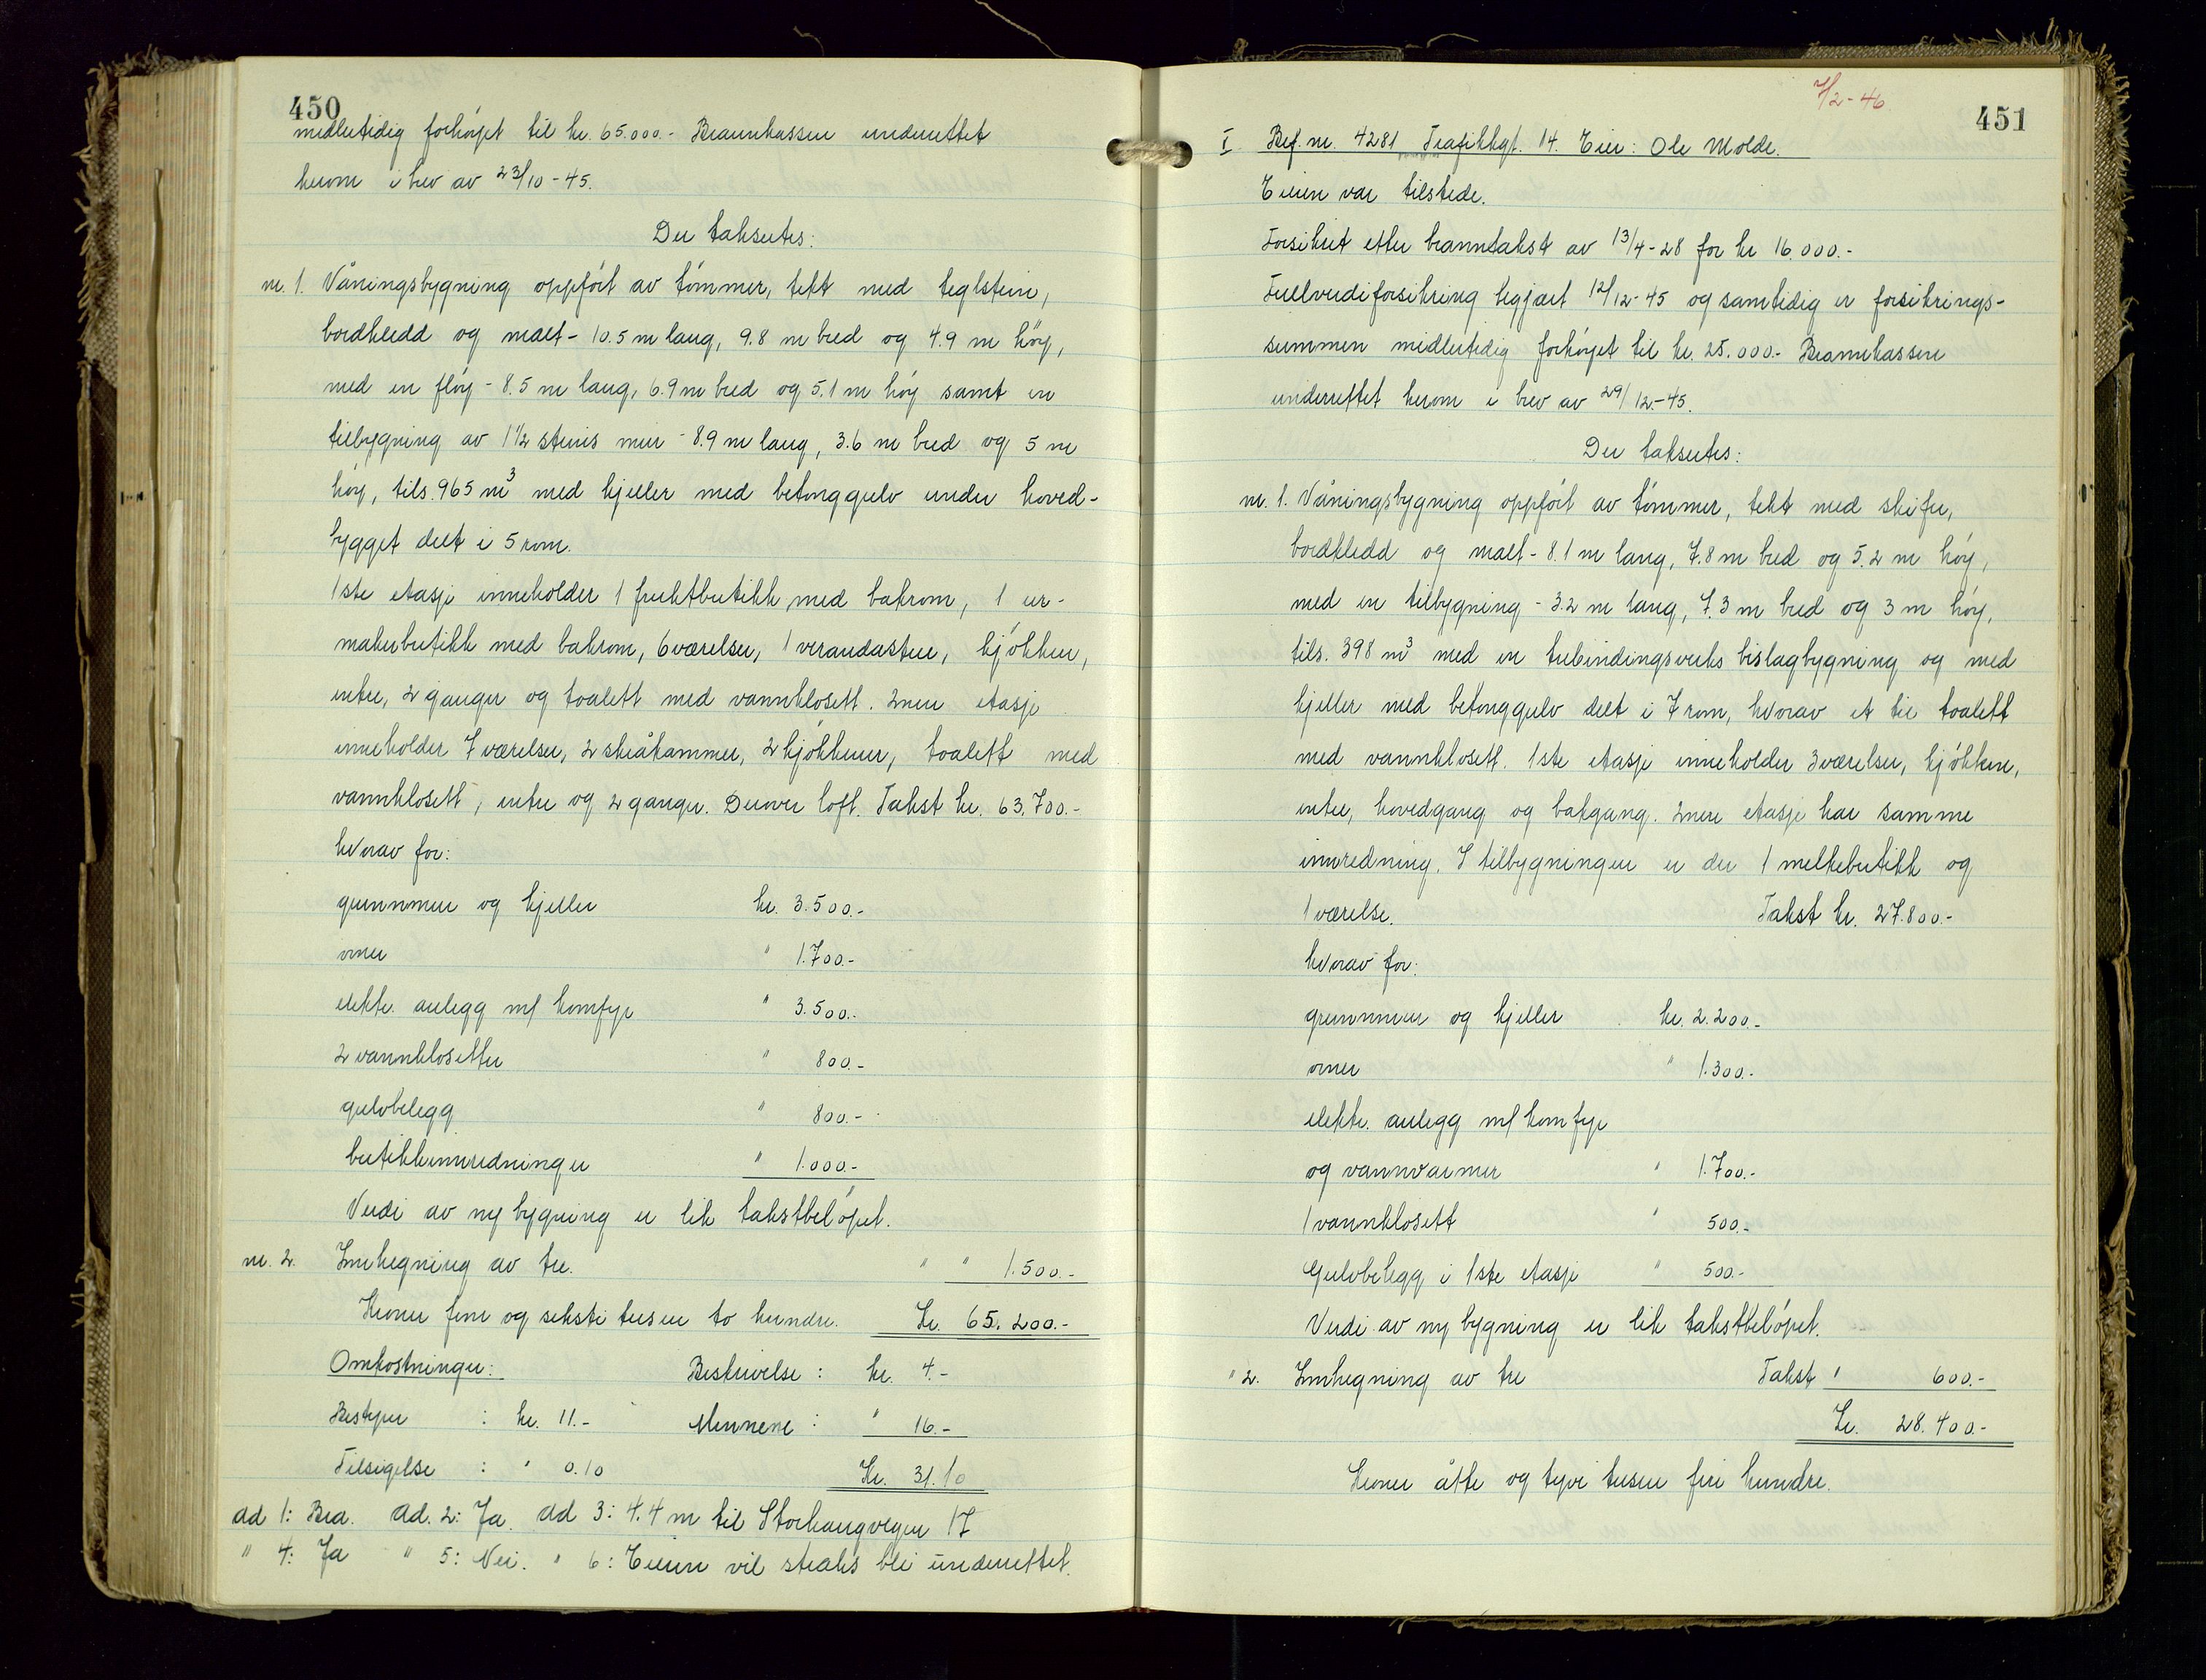 450
midlertidig forhöyet til kr. 65.000.- Brannkassen underrettet
herom i brev av 23/10-45.
Der takseres:
nr. 1. Våningsbygning oppfört av tömmer, tekt med teglstein,
bordkledd og malt - 10.5 m lang, 9.8 m bred og 4.9 m höy,
med en flöy - 8.5 m lang, 6.9 m bred og 5.1 m höy samt en
tilbygning av 1 1/2 stens mur - 8.9 m lang, 3.6 m bred og 5 m
höy, tils. 965 m³ med kjeller med betonggulv under hoved-
bygget delt i 5 rom.
1ste etasje inneholder 1 fruktbutikk med bakrom, 1 ur-
makerbutikk med bakrom, 6 værelser, 1 verandastue, kjökken,
entre, 2 ganger og toalett med vannklosett. 2nen etasje
inneholder 7 værelser, 2 skråkammer, 2 kjökkener, toalett med
vannklosett, entre og 2 ganger. Derover loft. Takst kr. 63.700.-
hvorav for:
grunnmur og kjeller kr. 3.500.-
ovner " 1.700.-
elektr. anlegg m/ komfyr " 3.500.-
2 vannklosetter " 800.-
gulvbelegg " 800.-
butikkinnredninger " 1.000.-
Verdi av ny bygning er lik takstbelöpet.
nr. 2. Innhegning av tre. " " 1.500.-
Kroner fem og seksti tusen to hundre. Kr. 65.200.-
Omkostninger: Beskrivelse : kr. 4.-
Bestyrer : kr. 11.- Mennene : " 16.-
Tilsigelse : " 0.10 Kr. 31.10
ad 1: Bra. ad. 2: Ja. ad 3: 4.4 m til Storhaugvegen 17
" 4: Ja " 5: Nei. " 6: Eieren vil straks bli underrettet.
7/2-46
451
I Bef. nr. 4281 Trafikkgt. 14. Eier: Ole Molde.
Eieren var tilstede.
Forsikret efter branntakst av 13/4-28 for kr 16.000.-
Fullverdiforsikring begjært 12/12-45 og samtidig er forsikrings-
summen midlertidig forhöyet til kr. 25.000.- Brannkassen
underrettet herom i brev av 29/12-45.
Der takseres:
nr. 1. Våningsbygning oppfört av tömmer, tekt med skifer,
bordkledd og malt - 8.1 m lang, 7.8 m bred og 5.2 m höy,
med en tilbygning - 3.2 m lang, 7.3 m bred og 3 m höy,
tils. 398 m³ med en trebindingsverks bislagbygning og med
kjeller med betonggulv delt i 7 rom, hvorav et til toalett
med vannklosett. 1ste etasje inneholder 3 værelser, kjökken,
entre, hovedgang og bakgang. 2nen etasje har samme
innredning. I tilbygningen er der 1 melkebutikk og
1 værelse. Takst kr. 27.800.-
hvorav for:
grunnmur og kjeller kr. 2.200.-
ovner " 1.300.-
elektr. anlegg m/ komfyr
og vannvarmer " 1.700.-
1 vannklosett " 500.-
Gulvbelegg i 1ste etasje " 500.-
Verdi av ny bygning er lik takstbelöpet.
" 2. Innhegning av tre Takst " 600.-
Kr. 28.400.-
Kroner åtte og tyve tusen fire hundre.